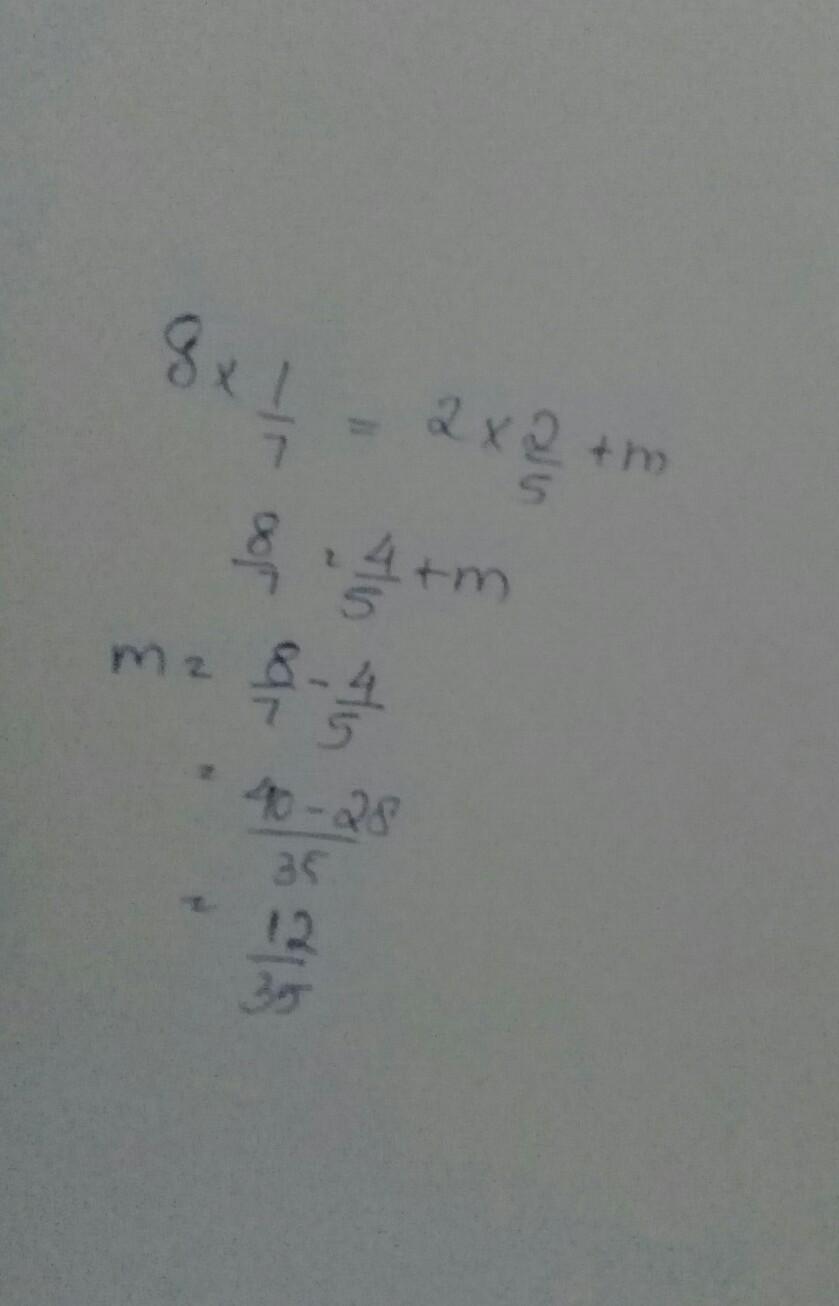 8 × 1/7 = 2 × 2/5 + m
8/7 = 4/5 + m
m = 8/7 - 4/5
= 40 - 28/35
= 12/35